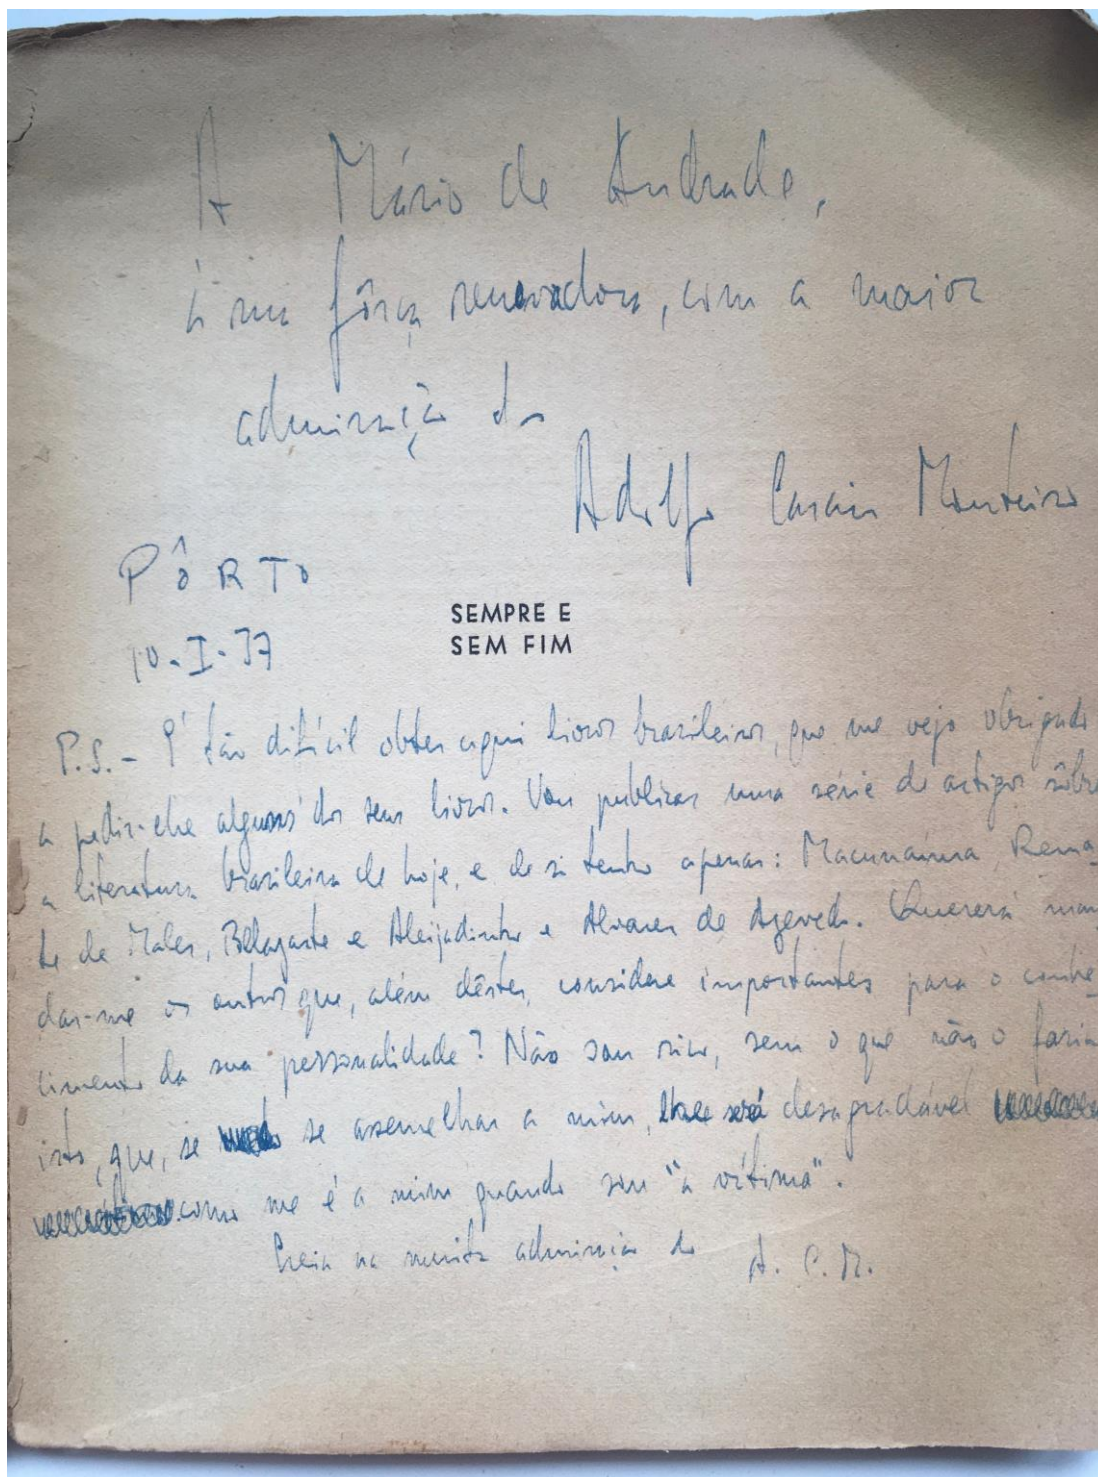 A Mário de Andrade,
à sua fôrça renovadora, com a maior
admiração do
Adolfo Casais Monteiro
PÔRTO
10-I-37
SEMPRE E
SEM FIM
P.S. - É tão difícil obter aqui livros brasileiros, que me vejo obrigado
a pedir-lhe alguns dos seus livros. Vou publicar uma série de artigos sôbre
a literatura brasileira de hoje, e de si tenho apenas: Macunaíma, Rema-
te de Males, Belazarte e Aleijadinho e Alvares de Azevedo. Quererá man-
dar-me os outros que, além dêstes, considere importantes para o conhe-
cimento da sua personalidade? Não sou rico, sem o que não o faria
isto, que, se se assemelhar a mim, lhe será desagradável
como me é a mim quando sou "a vítima".
Creia na muita admiração do A. C. M.